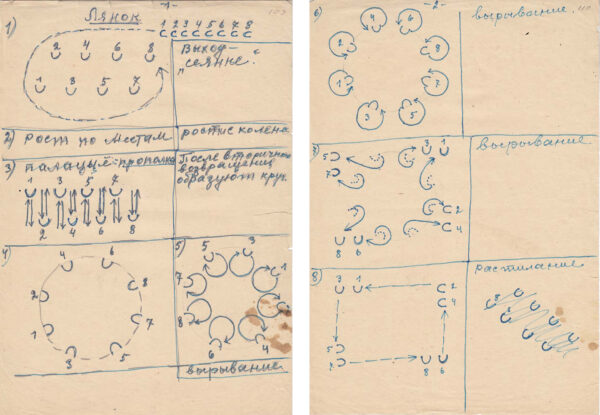 -1-
Лянок
1)
1 2 3 4 5 6 7 8
2 4 6 8
1 3 5 7
Выход-
„сеянне".
2) рост по местам
колена
3) прополка
1 3 5 7
2 4 6 8
После вторичного
возвращения
образуют круг.
4)
4 6
2 8
1 7
3 5
5)
5 3
7 1
8 2
6 4
вырывание
-2-
6)
4 6
2 8
1 7
3 5
вырывание.
7)
5 3 1
7
2
4
8 6
вырывание
8)
3 1
2
4
5
7
8 6
растилание
8